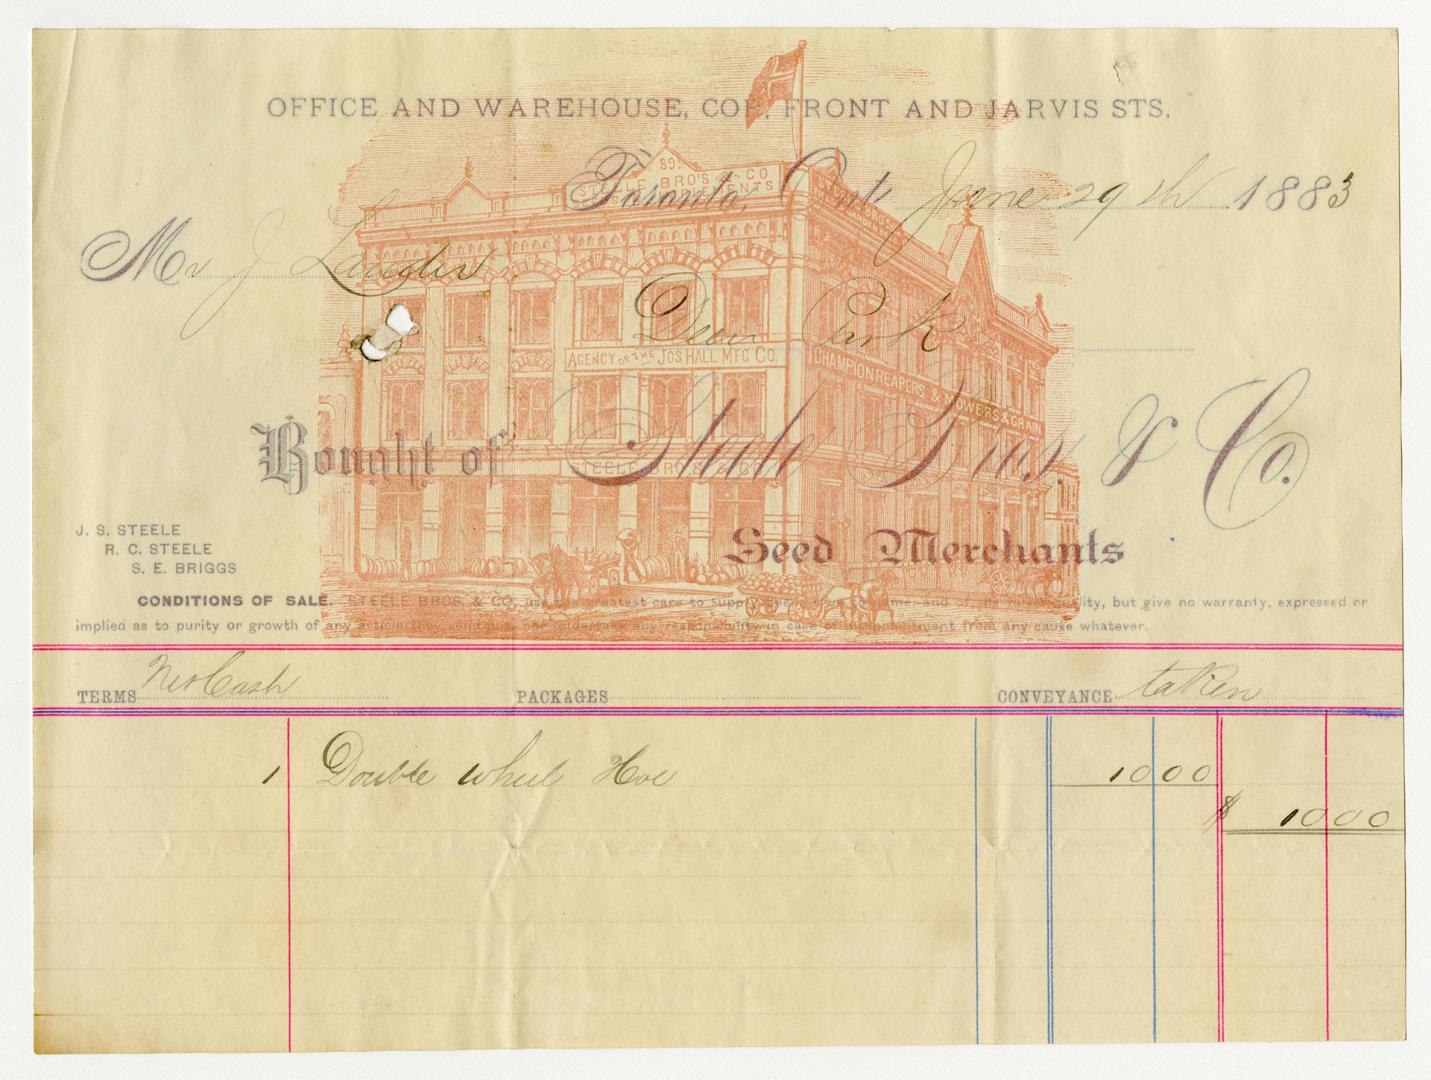 OFFICE AND WAREHOUSE, COR. FRONT AND JARVIS STS.
Toronto, Ont. June 29th 1883
Mr J
Deer Park
Bought of Steele Bros. & Co.
Seed Merchants
J. S. STEELE
R. C. STEELE
S. E. BRIGGS
CONDITIONS OF SALE. STEELE BROS. & CO. use the greatest care to supply and of quality, but give no warranty, expressed or
implied as to purity or growth of any article they send out, nor undertake any responsibility in case of disappointment from any cause whatever.
STEELE BRO'S & CO
IMPLEMENTS
AGENCY OF THE JOS HALL MFG CO.
CHAMPION REAPERS & MOWERS & GRAIN
STEELE BRO'S & CO
TERMS Net Cash PACKAGES CONVEYANCE taken
1 Double wheel Hoe 10 00
$ 10 00